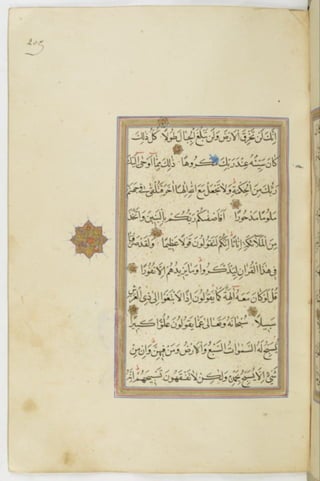 إنك لن تخرق الأرض ولن تبلغ الجبال طولا كل ذلك
كان سيئه عند ربك مكروها ذلك مما أوحى إليك
ربك من الحكمة ولا تجعل مع الله إلها آخر فتلقى في جهنم
ملوما مدحورا أفأصفيكم ربكم بالبنين واتخذ
من الملئكة إناثا إنكم لتقولون قولا عظيما ولقد صرفنا
في هذا القرآن ليذكروا وما يزيدهم إلا نفورا
قل لو كان معه آلهة كما يقولون إذا لابتغوا إلى ذي العرش
سبيلا سبحانه وتعالى عما يقولون علوا كبيرا
تسبح له السموات السبع والأرض ومن فيهن وإن من
شيء إلا يسبح بحمده ولكن لا تفقهون تسبيحهم إنه